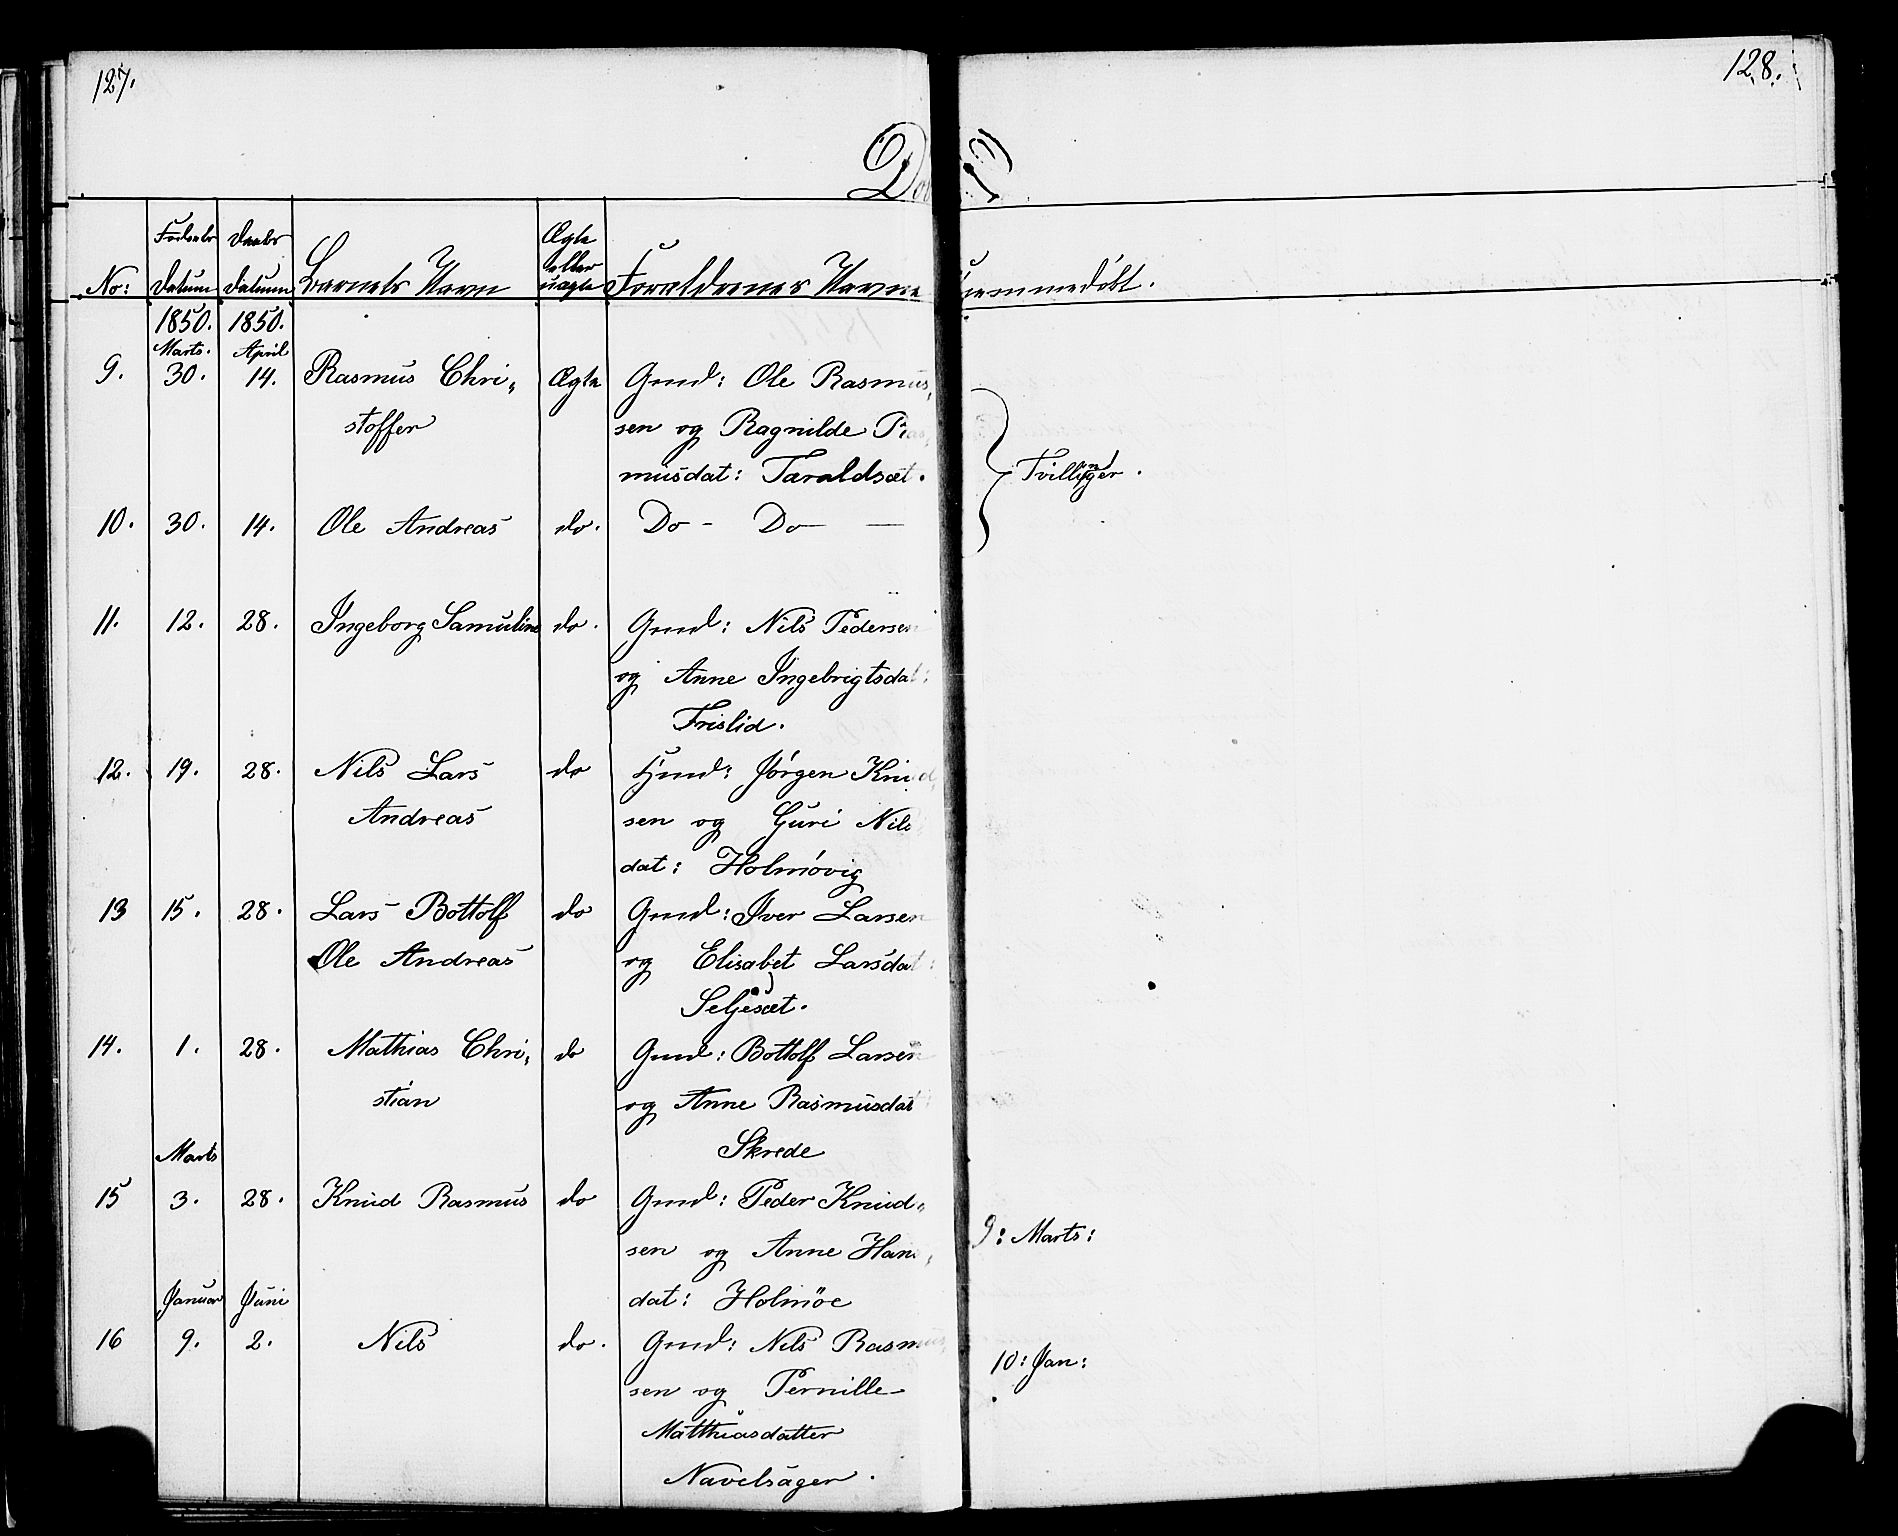 127.
128.
Døbte
No: Fødsels Datum Daabs Datum Barnets Navn Ægte eller uægte Forældrenes Navne Hjemmedøbt.
1850. 1850.
Marts. April
9. 30. 14. Rasmus Chri- Ægte Gmd: Ole Rasmus-
stoffer sen og Ragnilde Ras-
musdat: Taraldsæt.
Tvillinger.
10. 30. 14. Ole Andreas do. Do - Do —
11. 12. 28. Ingeborg Samuline do. Gmd: Nils Pedersen
og Anne Ingebrigtsdat:
Frislid.
12. 19. 28. Nils Lars do Hmd: Jørgen Knud-
Andreas sen og Guri Nils
dat: Holmøvig
13 15. 28. Lars Bottolf do Gmd: Iver Larsen
Ole Andreas og Elisabet Larsdat:
Seljesæt.
14. 1. 28. Mathias Chri- do Gmd: Bottolf Larsen
stian og Anne Rasmusdat
Marts Skrede
15 3. 28. Knud Rasmus do Gmd: Peder Knud-
sen og Anne Hans- 9: Marts:
Januar Juni dat: Holmöe
16 9. 2. Nils do. Gmd: Nils Rasmus-
10: Jan:
sen og Pernille
Matthiasdatter
Navelsager.